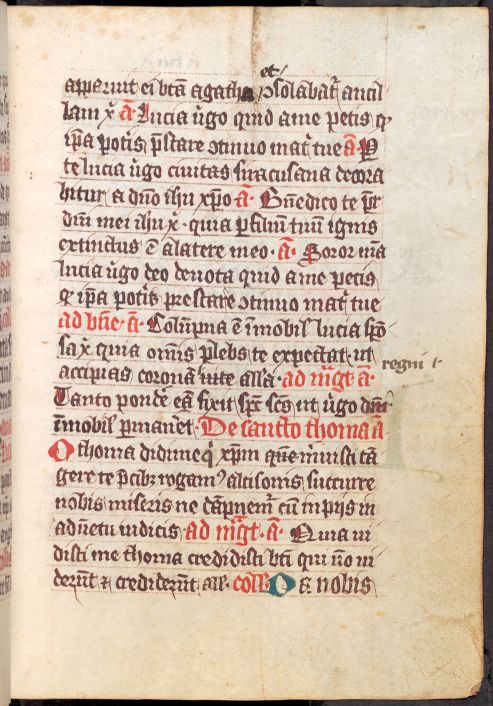 et
apparuit ei btā agatha ꝯsolabat᷑ ancil
lam x̄ · ā · Lucia ūgo quid a me petis qͥ
ip̄a potis p̄stare ꝯtinuo mat᷑ tue · ā · P
te lucia ūgo ciuitas siracusana decora
bitur a dn̄o ihū xp̄o · ā · Bn̄edico te pr̄
dn̄i mei ihū x̄ · quia p filiuͫ tuū ignis
extinctus ē a latere meo · ā · Soror mā
lucia ūgo deo deuota quid a me petis
qͥ ip̄a potis prestare ꝯtinuo mat᷑ tue
ad bn̄e · ā · Coluͫpna ē īmobil᷑ lucia spō
sa x̄ quia omīs plebs te expectat · ut
accipias coronā uite all̄a · ad mḡt · ā ·
regni t
Tanto pondē eā fixit spc̄ scs̄ ut ūgo dnī
īmobil᷑ pmanet · De sancto thoma ā
O thoma didime q̄ xpm̄ que᷑ meruisti tā
gere te p̄cibꝫ rogam᷒ altisonis succurre
nobis miseris ne dāpnem᷑ cū impijs in
aduētu iudicis ad mḡt · ā · Quia ui
disti me thoma credidisti bt̄i qui nō ui
derūt ⁊ crediderūt all᷑ · coll̄ · Da nobis